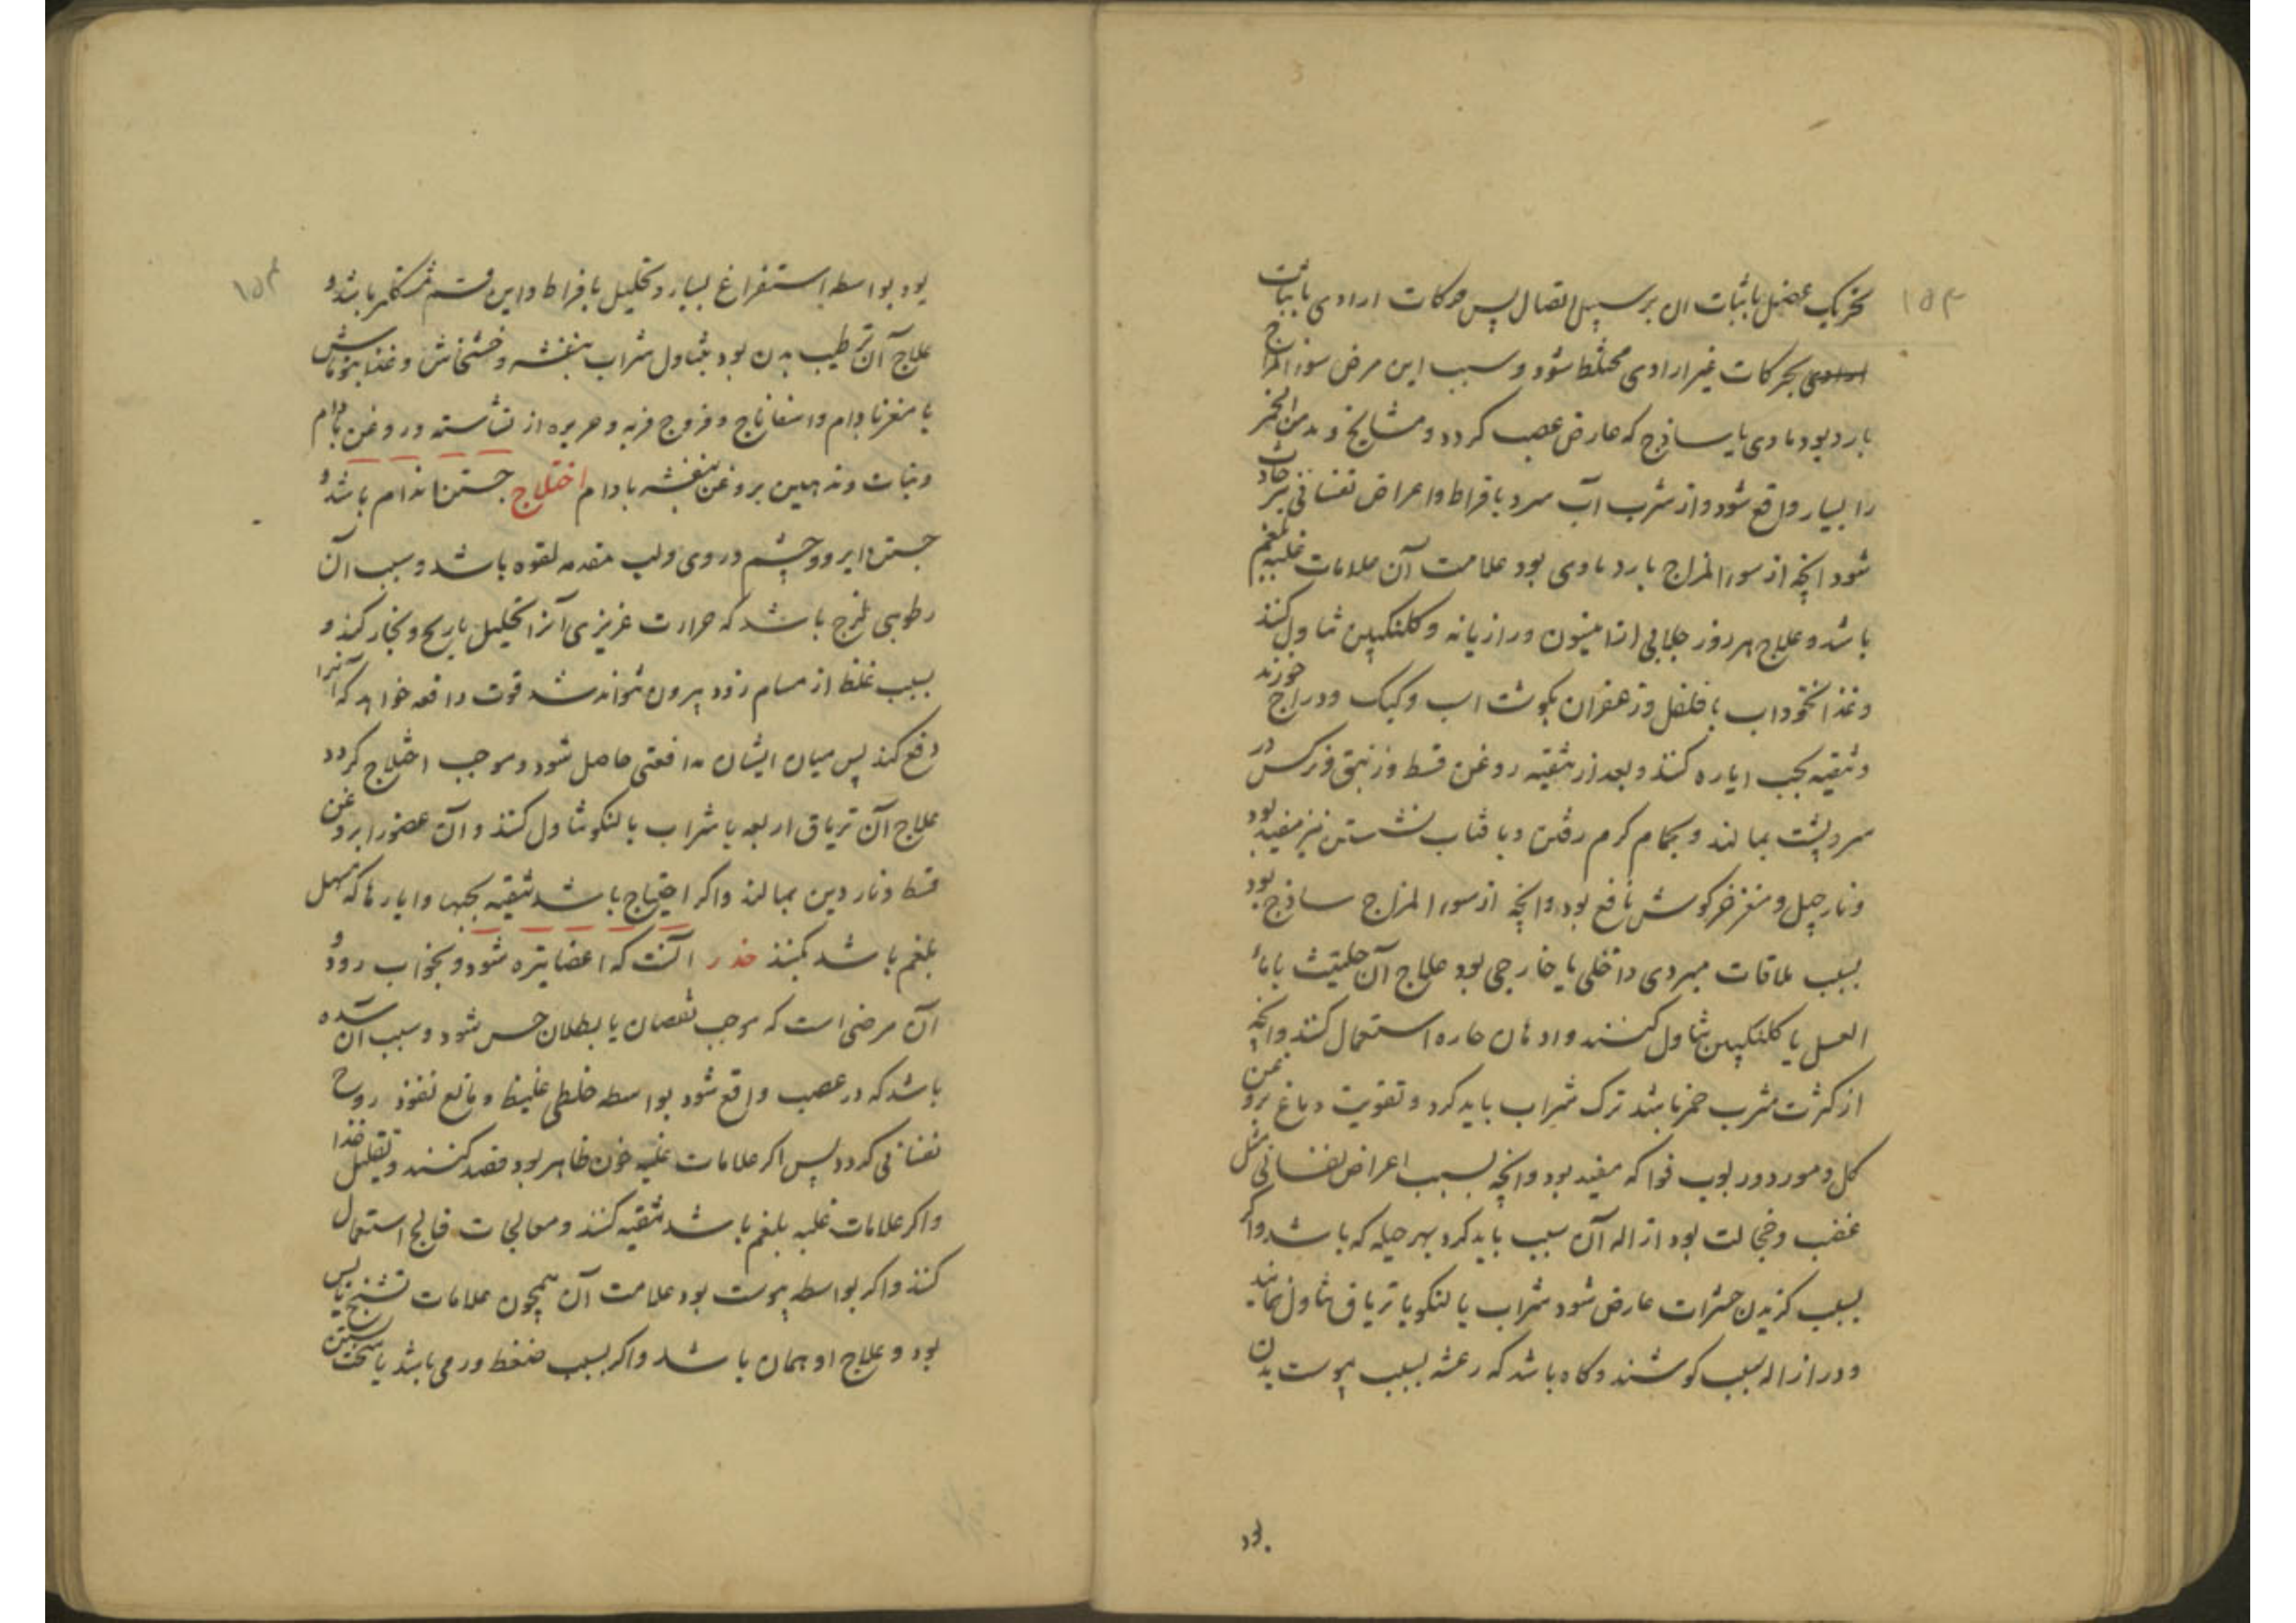 ۱۵۳
تحریک عضل یا ثبات ان بر سبیل اتصال پس حرکات ارادی یا ثبات
ارادی بحرکات غیر ارادی مختلط شود و سبب این مرض سوء المزاج
بارد بود مادی یا ساذج که عارض عصب کردد و مشایخ و مدمن الخمر
را بسیار واقع شود و از شرب آب سرد بافراط و اعراض نفسانی نیز حادث
شود انچه از سوء المزاج بارد مادی بود علامت آن علامات غلبه بلغم
باشد و علاج هر روز جلابی از انیسون و رازیانه و کلنکبین تناول کنند
و غذا نخوداب با فلفل و زعفران بکوشت اب و کبک و دراج خورند
و تنقیه بحب ایاره کنند و بعد از تنقیه روغن قسط و زنبق و نرکس در
سر و پشت بمالند و بحمام کرم رفتن و بافتاب نشستن نیز مفید بود
و نارجیل و مغز خرکوش نافع بود و انچه از سوء المزاج ساذج بود
بسبب ملاقات مبردی داخلی یا خارجی بود علاج آن حلتیت با ماء
العسل یا کلنکبین تناول کنند و ادهان حاره استعمال کنند و انچه
از کثرت شرب خمر باشد ترک شراب باید کرد و تقویت دماغ بروغن
کل و مورد و ربوب فواکه مفید بود و انچه بسبب اعراض نفسانی مثل
غضب و خجالت بود ازاله آن سبب باید کرد بهر حیله که باشد و اکر
بسبب کزیدن حشرات عارض شود شراب بالنکو یا تریاق تناول نمایند
و در ازاله سبب کوشند و کاه باشد که رعشه بسبب یبوست بدن
بود
۱۵۴
بود بواسطه استفراغ بسیار و تحلیل بافراط و این قسم مشکلتر باشد و
علاج آن ترطیب بدن بود بتناول شراب بنفشه و خشخاش و غذا بنوماش
با مغز بادام و اسفاناج و فروج فربه و حریره از نشاسته و روغن بادام
و نبات و تدهین بروغن بنفشه بادام اختلاج جستن اندام باشد و
جستن ابرو و چشم و روی و لب مقدمه لقوه باشد و سبب آن
رطوبی لزج باشد که حرارت غریزی آنرا تحلیل بریح و بخار کند و
بسبب غلظ از مسام زود بیرون نتواند شد قوت دافعه خواهد که آنرا
دفع کند پس میان ایشان مدافعتی حاصل شود و موجب اختلاج کردد
علاج آن تریاق اربعه با شراب بالنکو تناول کنند و آن عضو را بروغن
قسط و ناردین بمالند و اکر احتیاج باشد تنقیه بحبها و ایارها که مسهل
بلغم باشد بکنند خدر آنست که اعضا تیره شود و بخواب رود و
آن مرضی است که موجب نقصان یا بطلان حس شود و سبب آن سده
باشد که در عصب واقع شود بواسطه خلطی غلیظ و مانع نفوذ روح
نفسانی کردد پس اکر علامات غلبه خون ظاهر بود فصد کنند و تقلیل غذا
و اکر علامات غلبه بلغم باشد تنقیه کنند و معالجات فالج استعمال
کنند و اکر بواسطه یبوست بود علامت آن همچون علامات تشنج یابس
بود و علاج او همان باشد و اکر بسبب ضغط ورمی باشد یا سخت بستن